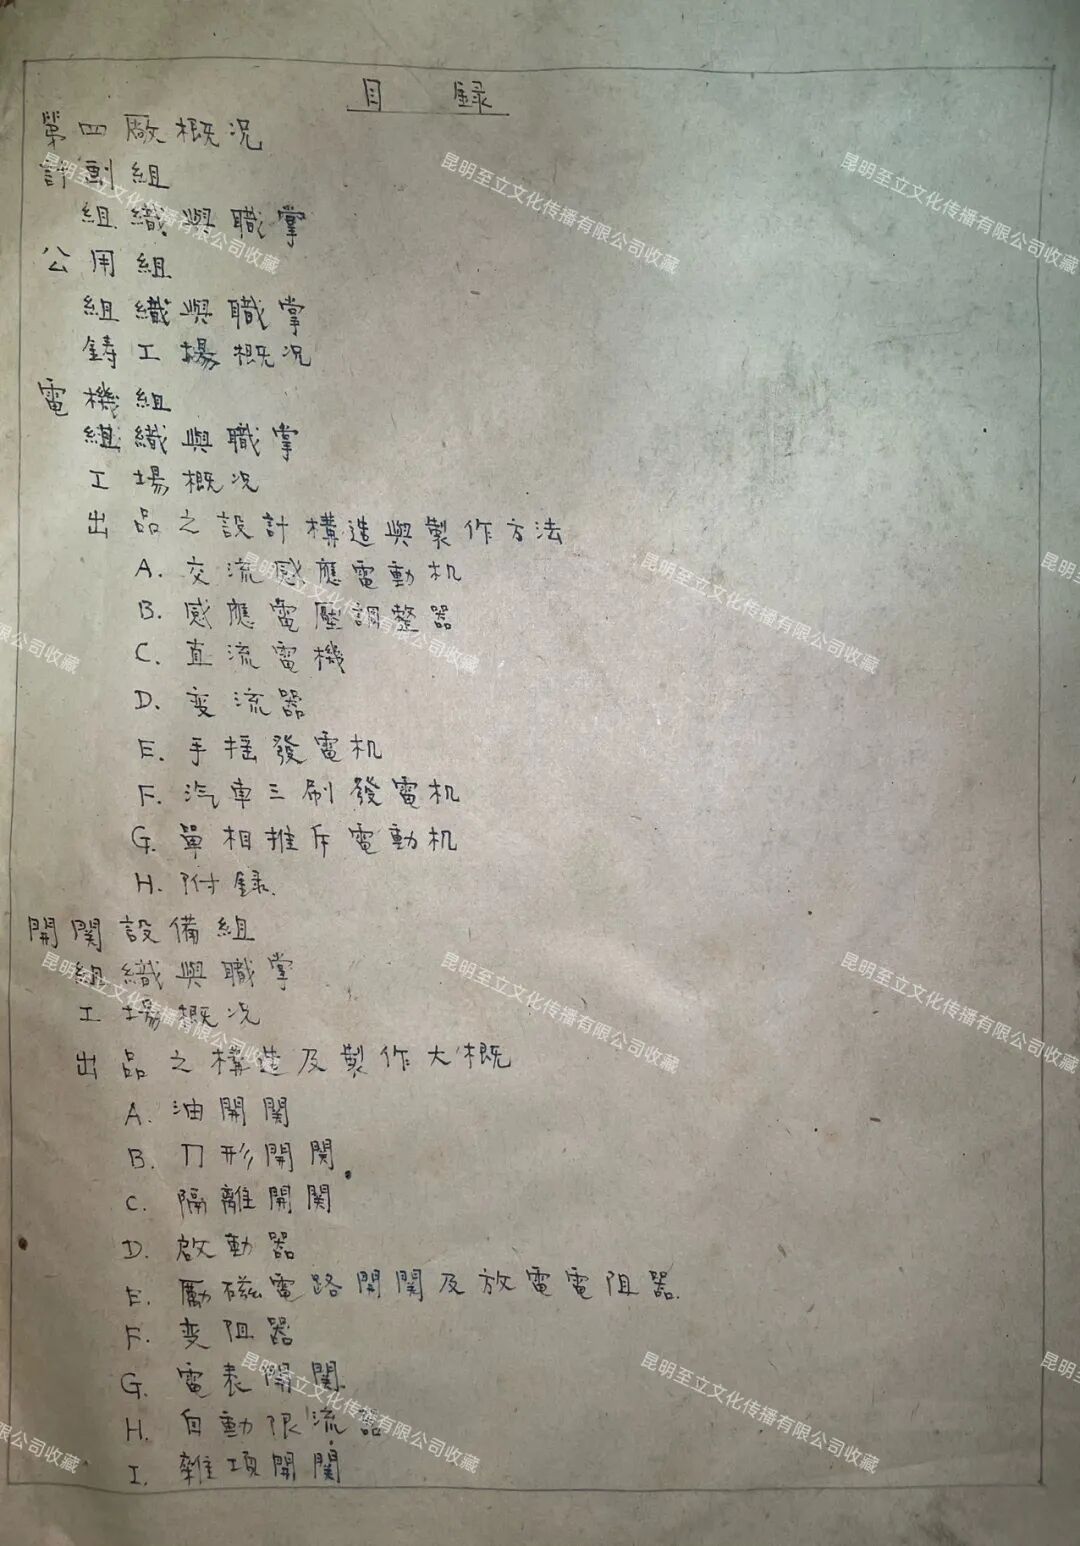 目 録
第四廠概況
計劃組
組織與職掌
公用組
組織與職掌
鋳工場概況
電機組
組織與職掌
工場概況
出品之設計構造與製作方法
A. 交流感應電動机
B. 感應電壓調整器
C. 直流電機
D. 变流器
E. 手摇發電机
F. 汽車三刷發電机
G. 單相推斥電動机
H. 附録.
開関設備組
組織與職掌
工場概况
出品之構造及製作大概
A. 油開関
B. 刀形開関
C. 隔離開関
D. 啟動器
E. 勵磁電路開関及放電電阻器.
F. 变阻器
G. 電表開関
H. 自動限流器
I. 雜項開関
昆明至立文化传播有限公司收藏
昆明至立文化传播有限公司收藏
昆明至立文化传播有限公司收藏
昆明至立文化传播有限公司收藏
昆明至立文化传播有限公司收藏
昆明至立文化传播有限公司收藏
昆明至立文化传播有限公司收藏
昆明至立文化传播有限公司收藏
昆明至立文化传播有限公司收藏